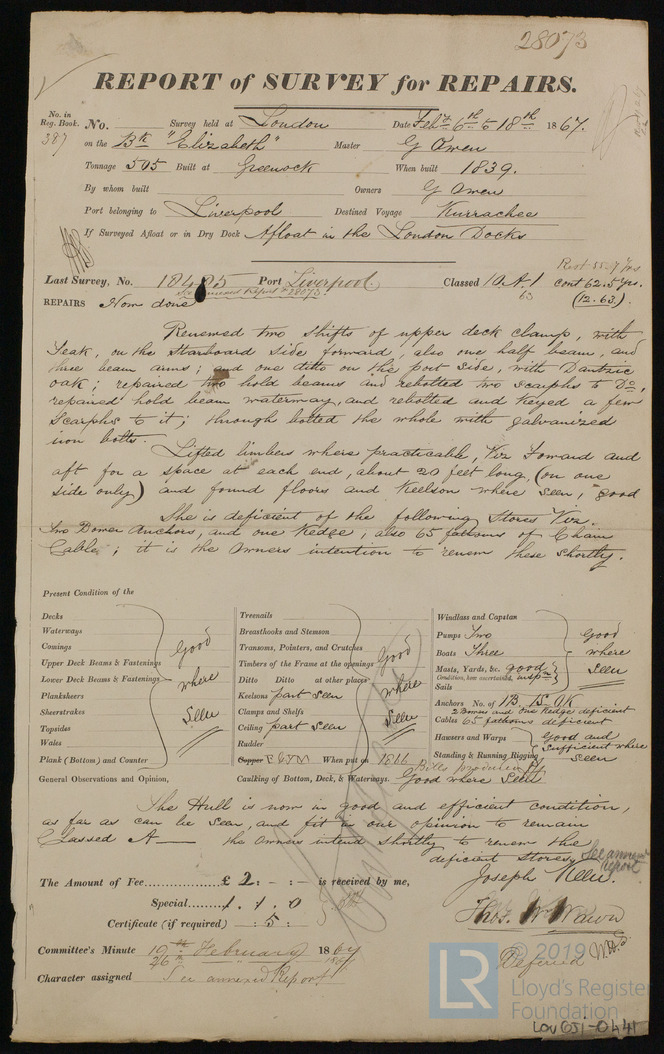 28073
REPORT of SURVEY for REPAIRS.
No. in Reg. Book. No. Survey held at London Date Feby 6th to 18th 1867.
387 on the Bk "Elizabeth" Master G Owen
Tonnage 505 Built at Greenock When built 1839.
By whom built Owners G Owen
Port belonging to Liverpool Destined Voyage Kurrachee
If Surveyed Afloat or in Dry Dock Afloat in the London Docks
Last Survey, No. 18485 Port Liverpool. Classed 10 A.1 Rest 55-7 yrs
See annexed Report 28073. 63 cont 62.5 yrs.
(12.63).
REPAIRS Now done
Renewed two shifts of upper deck clamp, with
Teak, on the Starboard Side forward, also one half beam, and
three beam arms; and one ditto on the port side, with Dantzic
oak; repaired two hold beams and rebolted two Scarphs to Do,
repaired hold beam waterway, and rebolted and Keyed a few
Scarphs to it; through bolted the whole with galvanized
iron bolts.
Lifted limbers where practicable, Viz Foward and
aft for a space at each end, about 20 feet long, (on one
side only) and found floors and Keelson where seen, "good
She is deficient of the following Stores Viz.
two Bower Anchors, and one Kedge; also 65 fathoms of Chain
Cable; it is the Owners intention to renew these shortly.
Present Condition of the
Decks
Waterways
Comings
Upper Deck Beams & Fastenings
Lower Deck Beams & Fastenings
Planksheers
Sheerstrakes
Topsides
Wales
Plank (Bottom) and Counter
Good
where
Seen
Treenails
Breasthooks and Stemson
Transoms, Pointers, and Crutches
Timbers of the Frame at the openings
Ditto Ditto at other places
Keelsons part seen
Clamps and Shelfs
Ceiling part seen
Rudder
Copper F & YM When put on 1866
Good
where
Seen
Windlass and Capstan
Pumps Two
Boats Three
Masts, Yards, &c. good
Condition, how ascertained, inspn
Sails
Good
where
Seen
Anchors No. of 1B, 1S, OK
2 Bowers and one Kedge deficient
Cables 65 fathoms deficient
Hawsers and Warps
Standing & Running Rigging
Good and
Sufficient where
Seen
General Observations and Opinion, Caulking of Bottom, Deck, & Waterways. Good where Seen
The Hull is now in good and efficient condition,
as far as can be seen, and fit in our opinion to remain
Classed A — the Owners intend shortly to renew the
deficient Stores,
See annexd report
The Amount of Fee £ 2 : - : - is received by me,
Special 1 . 1 . 0
Certificate (if required) : 5 :
Joseph
Thos. Wm Wawn
Committee's Minute 19th February 1867
26th 1867
Defered
Character assigned See annexed Report
© 2019
LR
Lloyd's Register
Foundation
LON651-0441